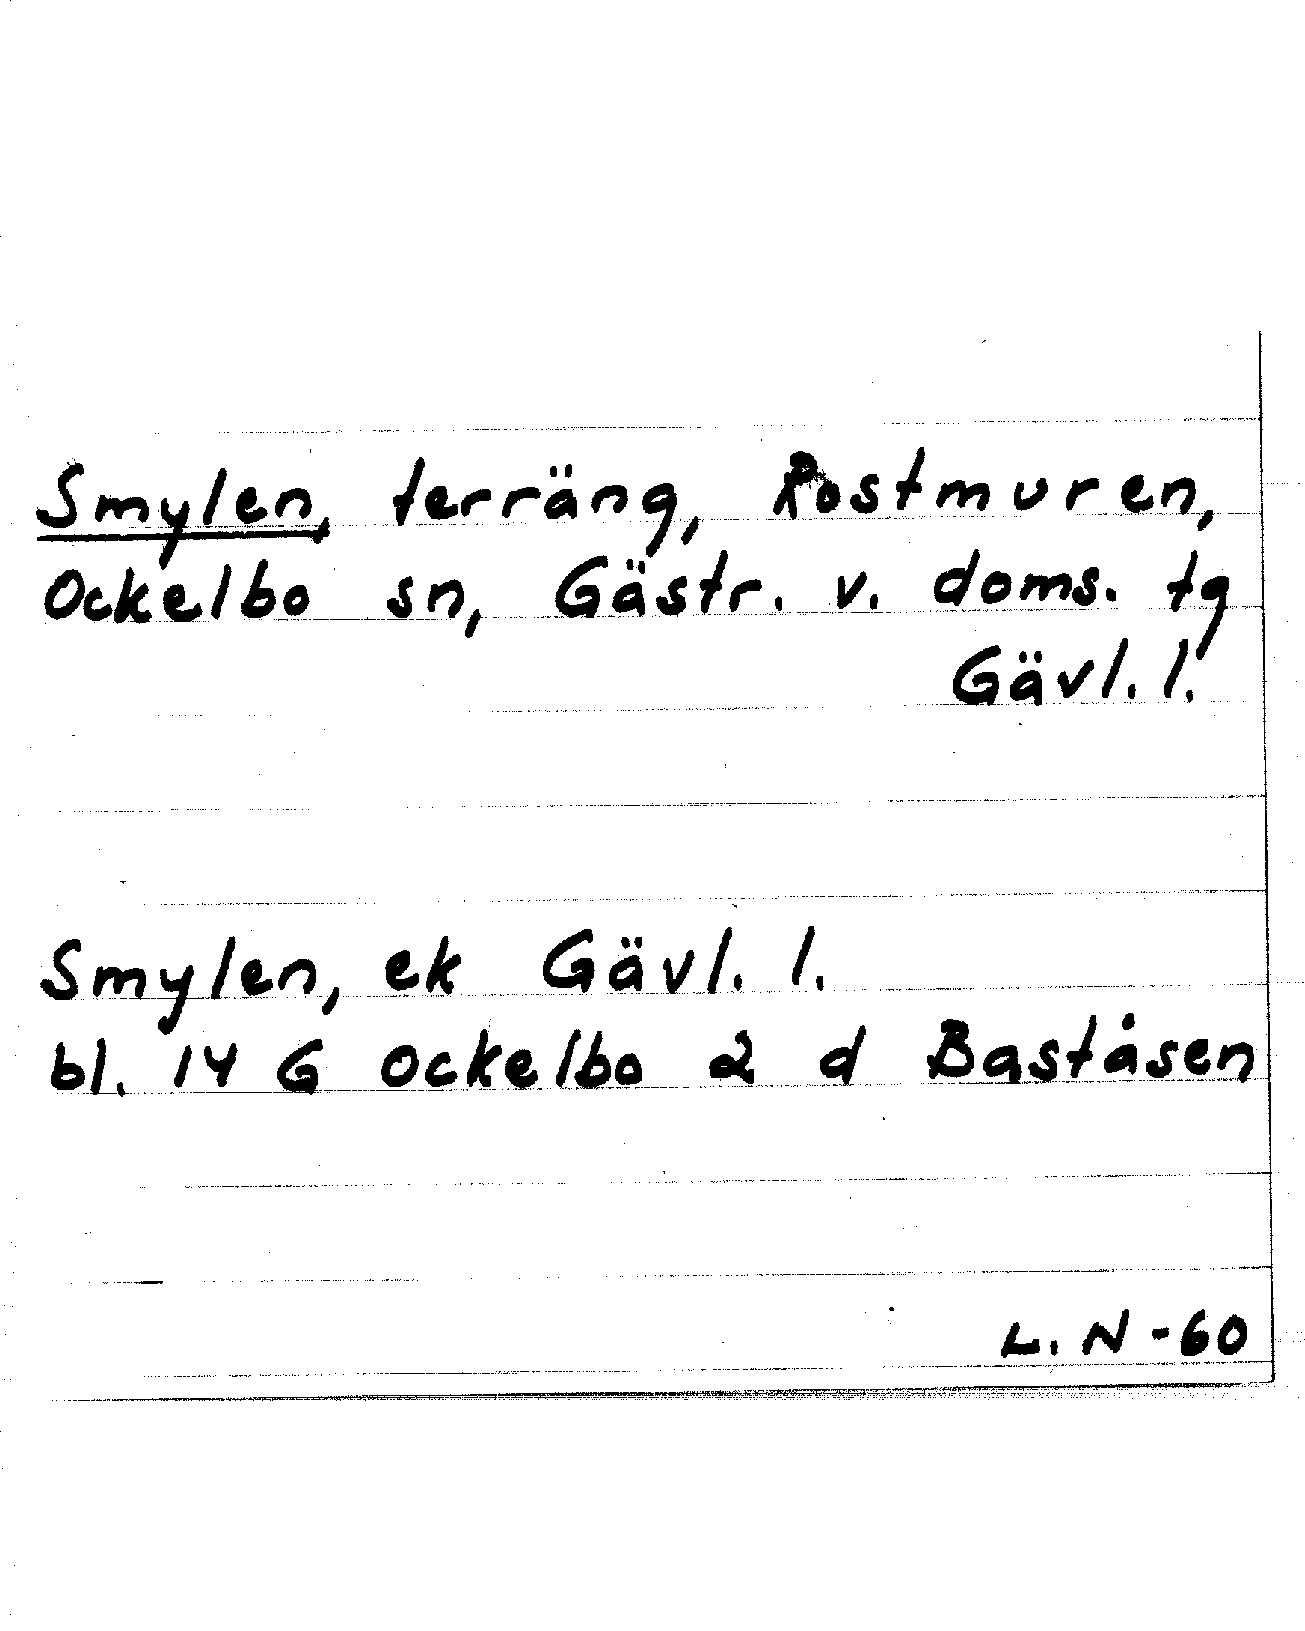 Smylen, terräng, Rostmuren,
Ockelbo sn, Gästr. v. doms. tg
Gävl. l.
Smylen, ek Gävl. l.
bl. 14 G Ockelbo 2 d Baståsen
L. N -60